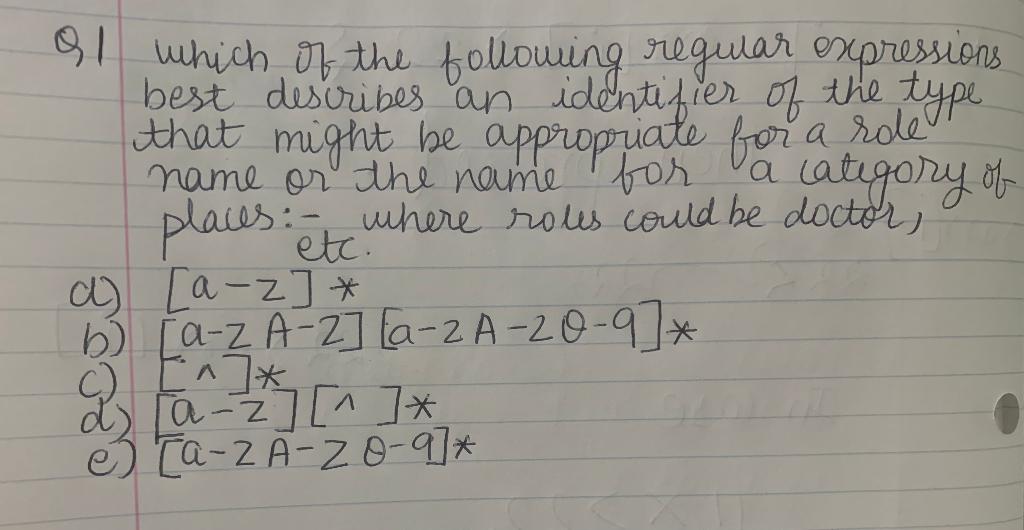 Q1 which of the following regular expressions
best describes an identifier of the type
that might be appropriate for a role
name or the name for a category of
places:- where roles could be doctor,
etc.
a) [a-z]*
b) [a-zA-Z][a-zA-Z0-9]*
c) [^ ]*
d) [a-z][^ ]*
e) [a-zA-Z0-9]*